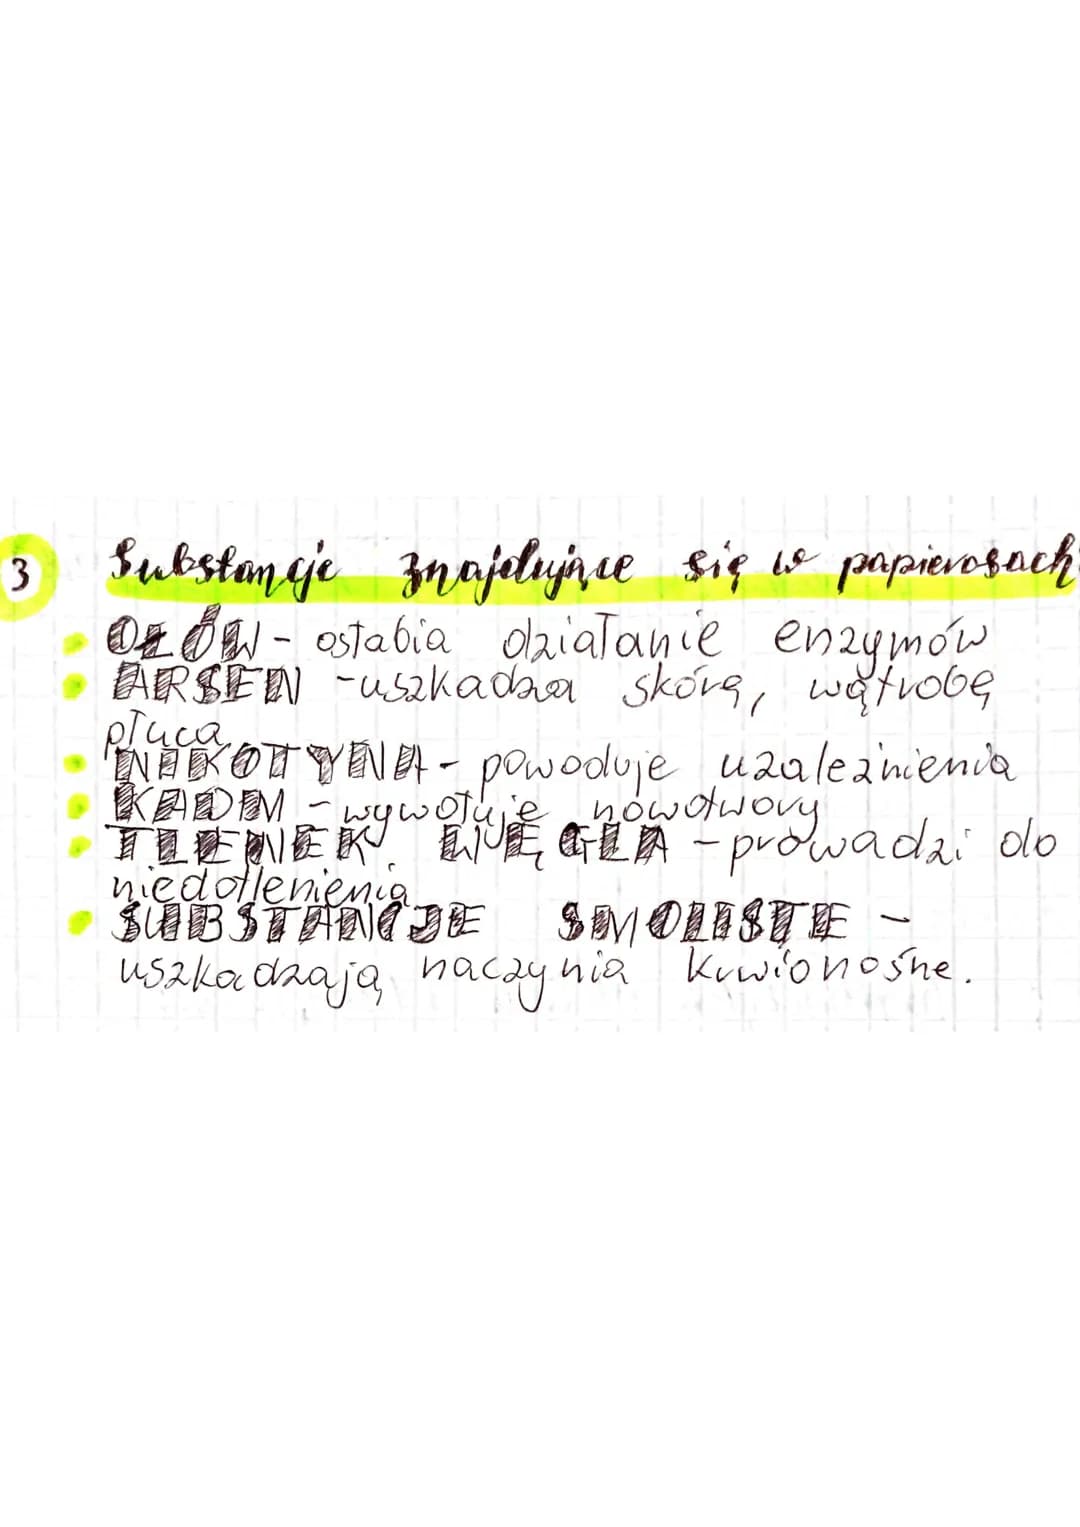 3 Substancje znajdujące się w papierosach:
OŁÓW - osłabia działanie enzymów
ARSEN - uszkadza skórę, wątrobę
płuca
NIKOTYNA - powoduje uzależnienia
KADM - wywołuje nowotwory
TLENEK WĘGLA - prowadzi do
niedotlenienia
SUBSTANCJE SMOLISTE -
uszkadzają naczynia krwionośne.